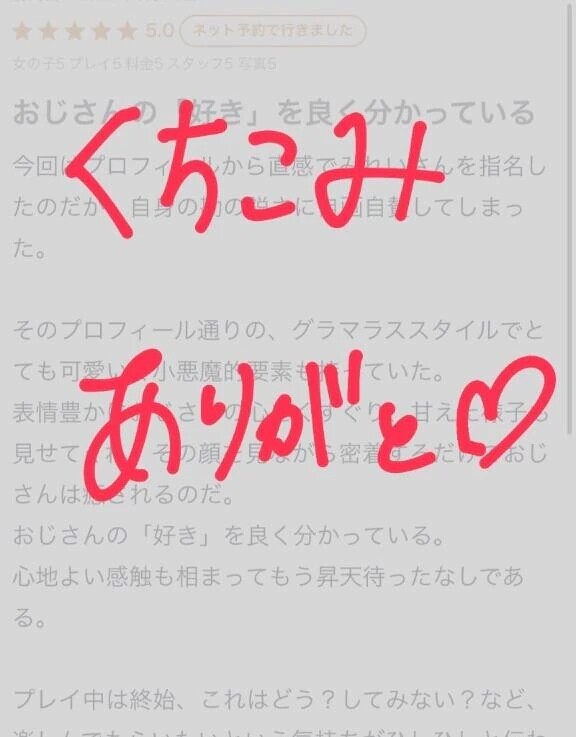 ★★★★★ 5.0 ネット予約で行きました
女の子5 プレイ5 料金5 スタッフ5 写真5
おじさんの「好き」を良く分かっている
今回はプロフィールから直感でみれいさんを指名し
たのだが、自身の勘の鋭さに自画自賛してしまっ
た。
くちこみ
そのプロフィール通りの、グラマラススタイルでと
ても可愛い、小悪魔的要素も持っていた。
表情豊かにおじさんの心をくすぐり、甘えた様子も
見せてくれ、その顔を見ながら密着するだけでおじ
さんは癒されるのだ。
ありがと♡
おじさんの「好き」を良く分かっている。
心地よい感触も相まってもう昇天待ったなしであ
る。
プレイ中は終始、これはどう？してみない？など、